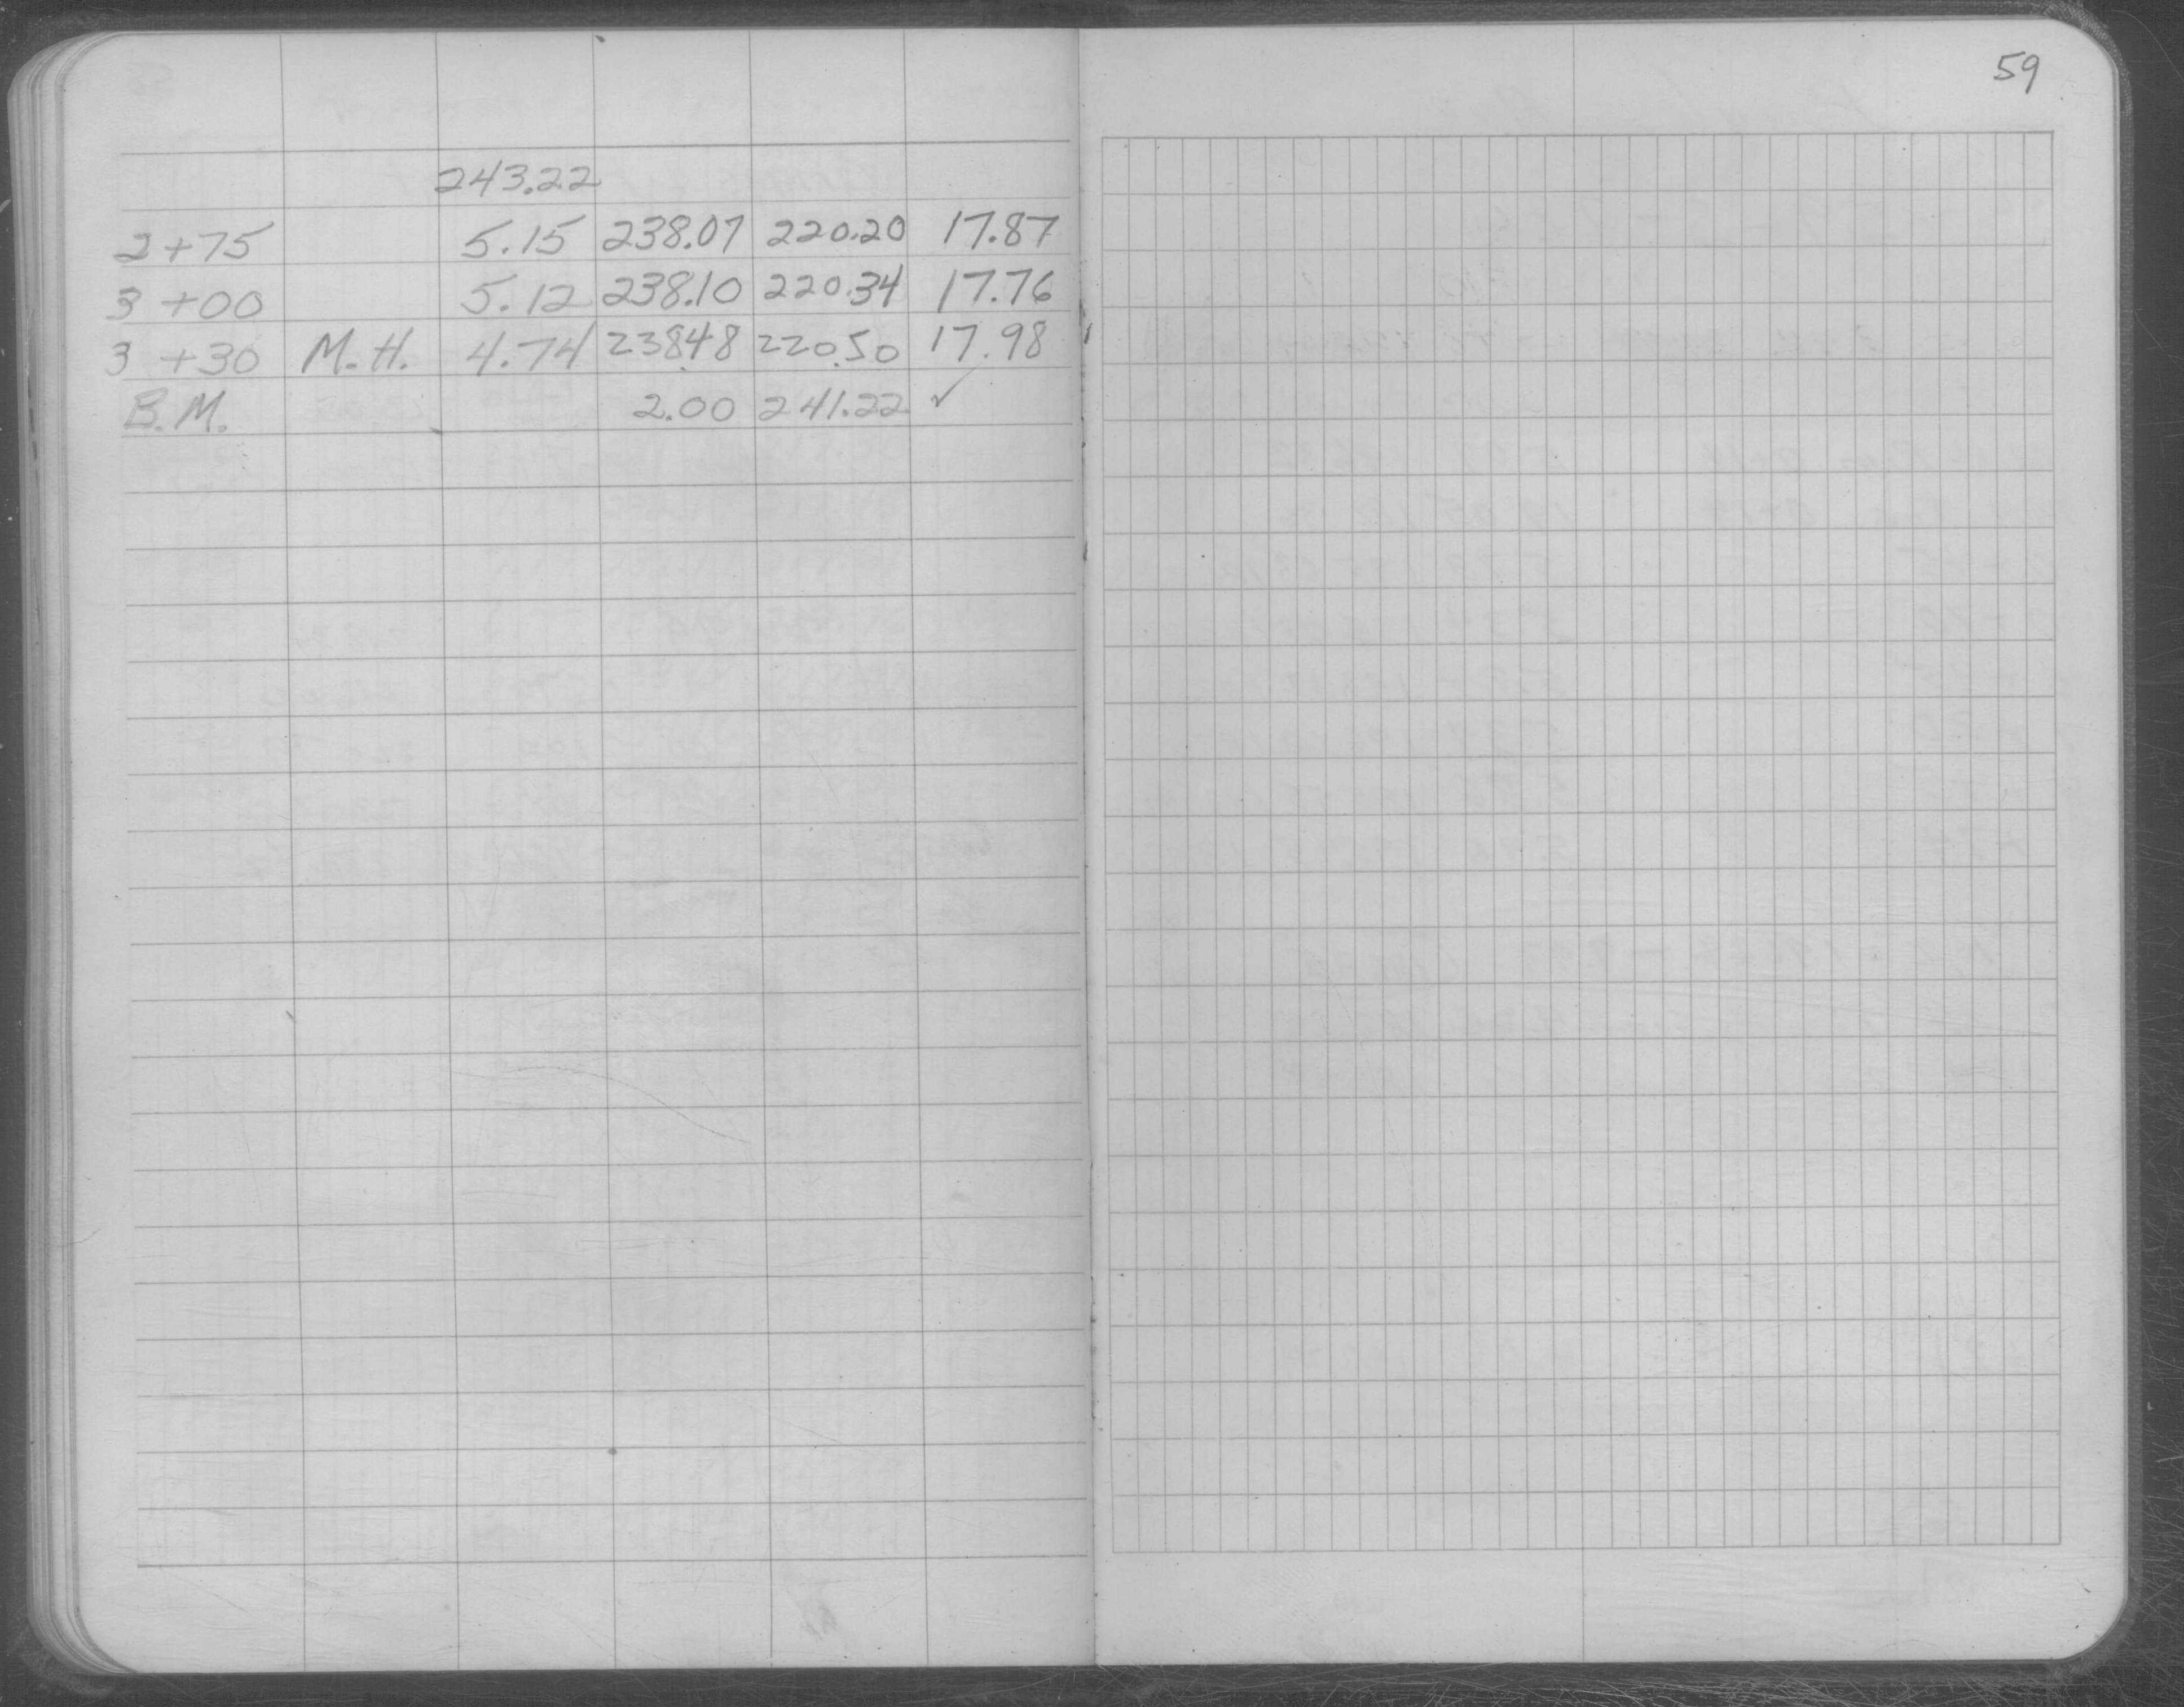 59
243.22
2+75 5.15 238.07 220.20 17.87
3+00 5.12 238.10 220.34 17.76
3+30 M.H. 4.74 238.48 220.50 17.98
B.M. 2.00 241.22 ✓